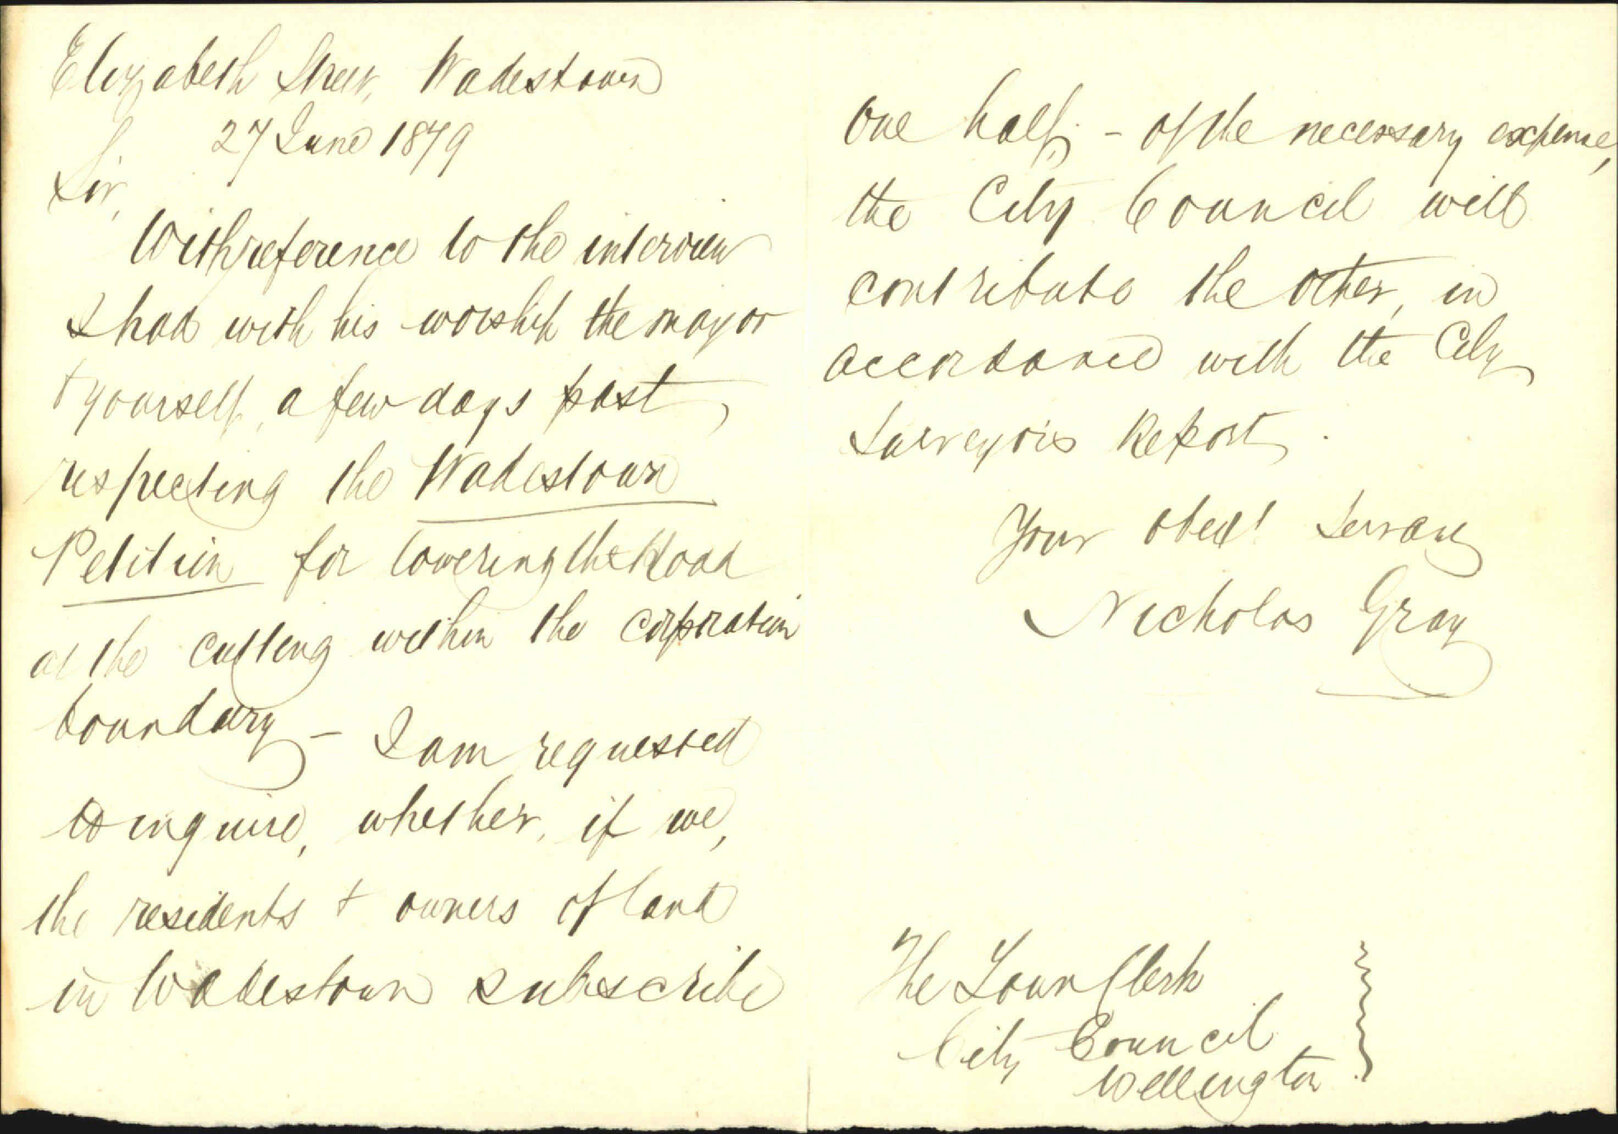 Elizabeth Street, Wadestown
27 June 1879
Sir,
With reference to the interview
I had with his worship the mayor
& yourself, a few days past,
respecting the Wadestown
Petition for lowering the Road
at the cutting within the corporation
boundary – I am requested
to inquire, whether, if we,
the residents & owners of land
in Wadestown subscribe
one half, – of the necessary expense,
the City Council will
contribute the other, in
accordance with the City
Surveyors Report.
Your obedt Servant
Nicholas Gray
The Town Clerk
City Council
Wellington